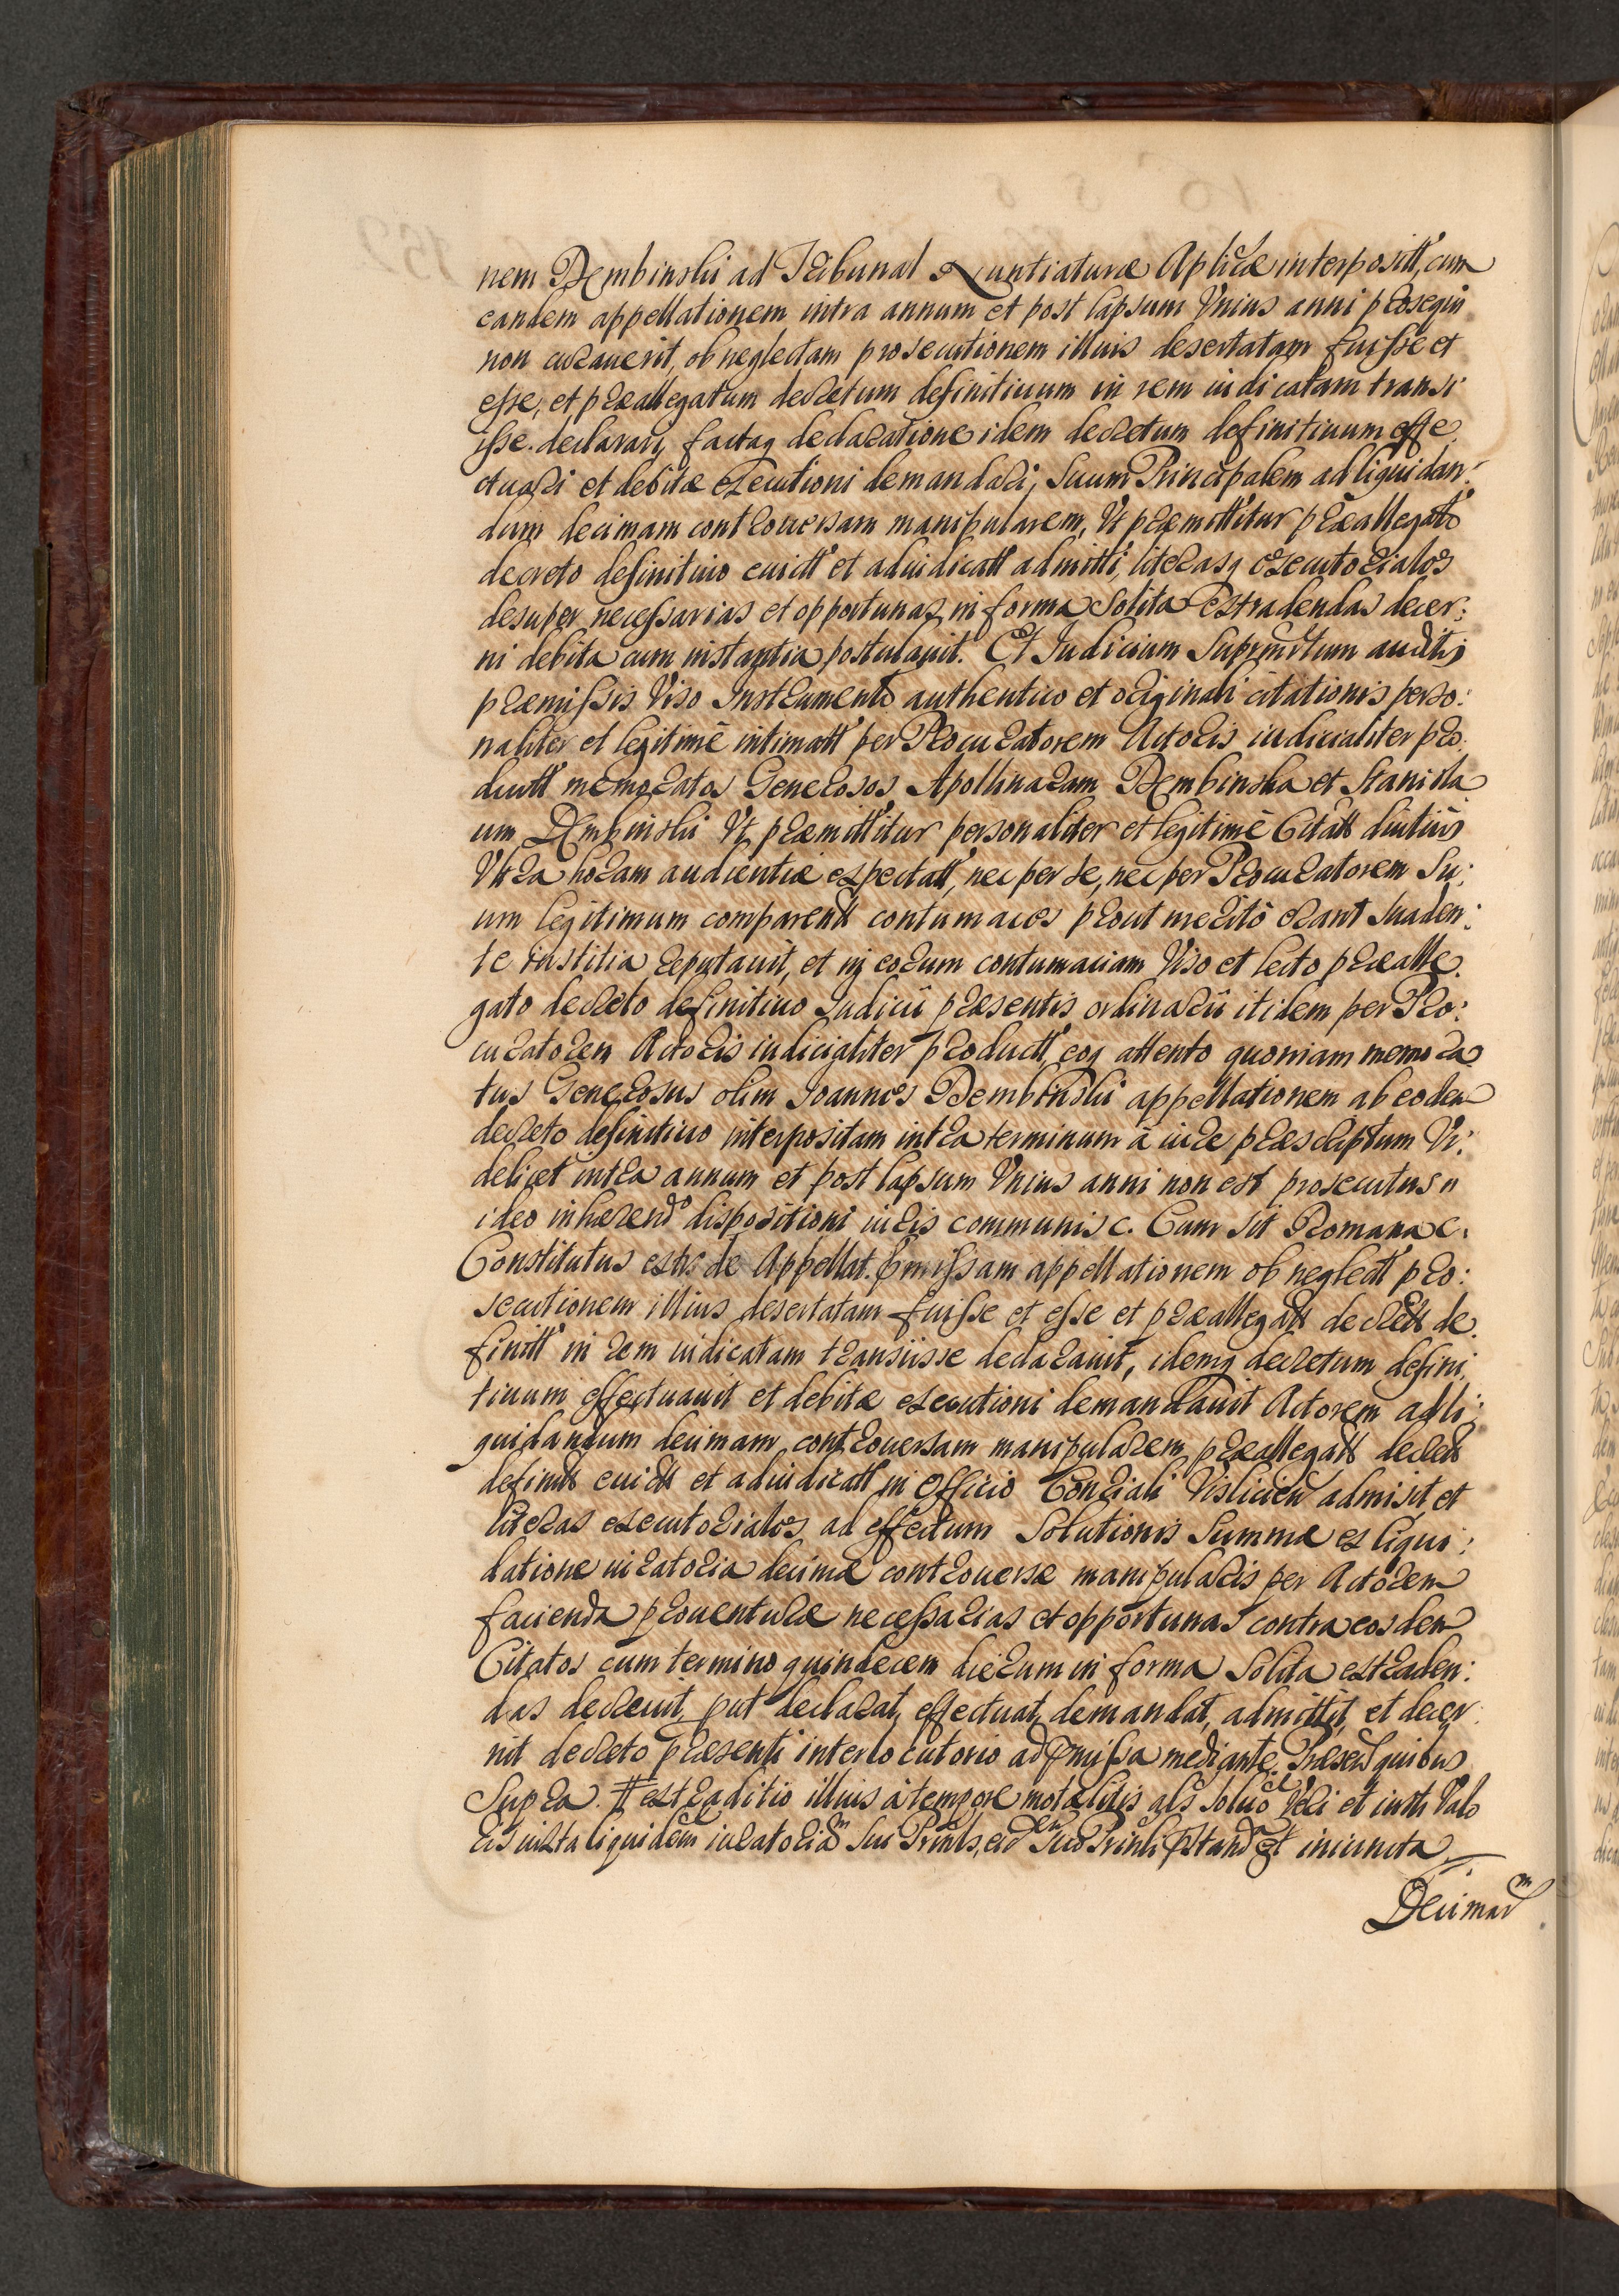 nem Dembinski ad Tribunal Nuntiaturæ Aplicæ interpositt, cum
eandem appellationem intra annum et post lapsum Vnius anni prosequi
non curauerit, ob neglectam prosecutionem illius desertatam fuisse et
esse, et præallegatum decretum definitiuum in rem iudicatam transi
isse. declarari, factaq declaratione idem decretum definitiuum effe
ctuari et debitæ executioni demandari, Suum Principalem ad liquidan:
dum decimam controuersam manipularem, Vt præmittitur præallegato
decreto definitiuo euictt et adiudicatt admitti, literasq executoriales
desuper necessarias et opportunas in forma Solita extradendas decer:
ni debita cum instantia postulauit. Et Iudicium Suprmctum auditis
præmissis Viso Instrumento authentico et originali citationis perso:
naliter et legitimè intimatt per Procuratorem Actoris iudicialiter pro
ductt memoratos Generosos Apollinaram Dembinska et Stanisla
um Dembinski Vt præmittitur personaliter et legitimè Citatt diutius
Vltra horam audientiæ expectatt, nec per se, nec per Procuratorem Su:
um legitimum comparentt contumaces prout meritò erant suaden:
te iustitia reputauit, et in eorum contumaciam Viso et lecto prealle:
gato decreto definitiuo Iudicii præsentis ordinarii itidem per Pro:
curatorem Actoris iudicialiter productt, eoq attento quoniam memora
tus Generosus olim Ioannes Dembinski appellationem ab eodem
decreto definitiuo interpositam intra terminum à iure præscriptum Vi:
delicet intra annum et post lapsum Vnius anni non est prosecutus
ideo inhærendo dispositioni iuris communis c. Cum sit Romana c.
Constitutus extr. de Appellat. pmissam appellationem ob neglectt pro:
secutionem illius desertatam fuisse et esse et præallegatt decrett de
finitt in rem iudicatam transiisse declarauit, idemq decretum defini
tiuum effectuauit et debitæ executioni demandauit Actorem ad li:
quidandum decimam controuersam manipularem præallegatt decrett
definitt euictt et adiudicatt in Officio Consiali Vislicien admisit et
literas executoriales ad effectum Solutionis Summæ ex liqui:
datione iuratoria decimæ controuersæ manipularis per Actorem
facienda prouenturæ necessarias et opportunas contra eosdem
Citatos cum termino quindecem dierum in forma Solita extraden:
das decreuit, put declarat, effectuat, demandat, admittit, et decer
nit decreto præsenti interlocutorio ad pmissa mediante. Præsen quibus
Supra. # extraditio illius à tempore motæ litis als Soluo Veri et iusti Valo
ris iuxta liquidem iuratoria Sui Prinlis, eid Suo Prinli pstand est iniuncta
Decimar